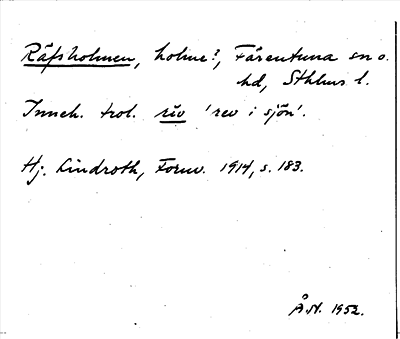 Räfsholmen, holme?, Färentuna sn o.
hd, Sthlms l.
Inneh. trol. rīv 'rev i sjön'.
Hj. Lindroth, Fornv. 1914, s. 183.
Å.N. 1952.